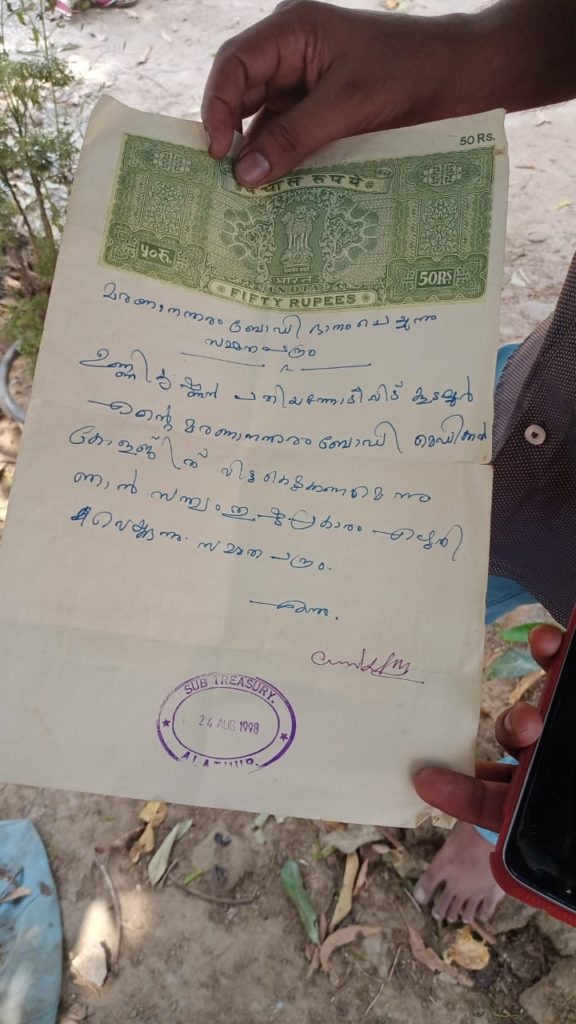 50 Rs.
पचास रुपये
५०रु.
भारत
INDIA
50RS
FIFTY RUPEES
മരണാനന്തരം ബോഡി ദാനം ചെയ്യുന്ന
സമ്മതപത്രം
ഉണ്ണികൃഷ്ണൻ
എന്റെ മരണാനന്തരം ബോഡി മെഡിക്കൽ
കോളേജിന് വിട്ടുകൊടുക്കണമെന്ന
ഞാൻ സ്വന്തം ഇഷ്ടപ്രകാരം എഴുതി
വെയ്ക്കുന്ന. സമ്മതപത്രം.
എന്ന.
SUB TREASURY.
24 AUG 1998
ALATHUR.